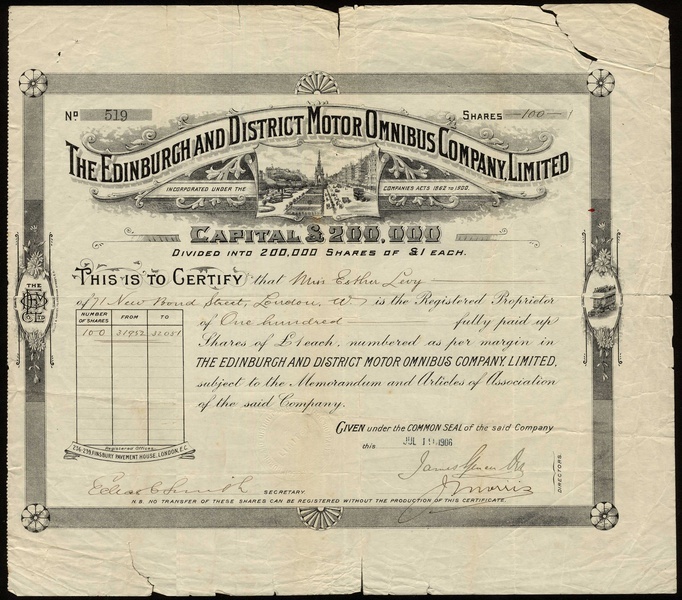 No 519
SHARES 100
THE EDINBURGH AND DISTRICT MOTOR OMNIBUS COMPANY, LIMITED
INCORPORATED UNDER THE COMPANIES ACTS 1862 TO 1900.
CAPITAL £200,000
DIVIDED INTO 200,000 SHARES OF £1 EACH.
THIS IS TO CERTIFY that Miss Esther Levy
of 71 New Bond Street, London, W. is the Registered Proprietor
of One hundred fully paid up
Shares of £1 each, numbered as per margin in
THE EDINBURGH AND DISTRICT MOTOR OMNIBUS COMPANY, LIMITED,
subject to the Memorandum and Articles of Association
of the said Company.
NUMBER OF SHARES FROM TO
100 31952 32051
THE
LTD
Registered Offices,
236-239, FINSBURY PAVEMENT HOUSE, LONDON, E.C.
GIVEN under the COMMON SEAL of the said Company
this JUL 1906
James
J Morris
DIRECTORS.
Smith
SECRETARY.
N.B. NO TRANSFER OF THESE SHARES CAN BE REGISTERED WITHOUT THE PRODUCTION OF THIS CERTIFICATE.